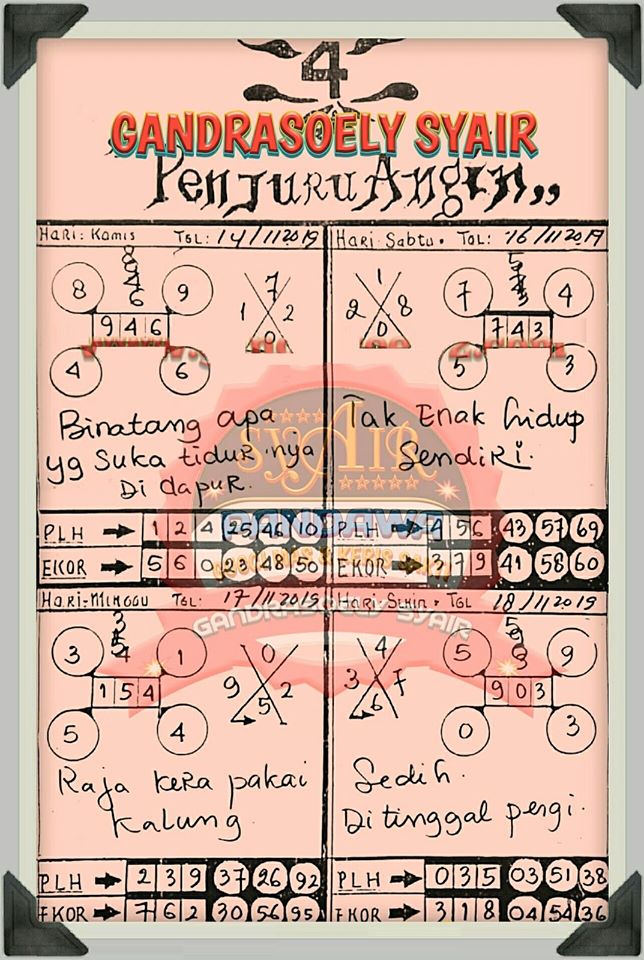 4
GANDRASOELY SYAIR
Penjuru Angin,,
Hari: Kamis TGL: 14/11 2019
8 9
9 4 6
4 6
7
1 2
0
Binatang apa
yg Suka tidur nya
Di dapur.
PLH 1 2 4 25 46 10
EKOR 5 6 0 23 48 50
Hari Sabtu. TGL: 16/11 2019
1
2 8
0
7 4
7 4 3
5 3
Tak Enak hidup
Sendiri.
PLH 4 5 6 43 57 69
EKOR 3 7 9 41 58 60
SYAIR
PANDAWA
GANDRASOELY SYAIR
Hari: Minggu TGL: 17/11 2019
3 1
1 5 4
5 4
0
9 2
5
Raja kera pakai
kalung
PLH 2 3 9 37 26 92
EKOR 7 6 2 30 56 95
Hari: Senin. TGL 18/11 2019
4
3 7
6
5 9
9 0 3
0 3
Sedih.
Di tinggal pergi.
PLH 0 3 5 03 51 38
EKOR 3 1 8 04 54 36